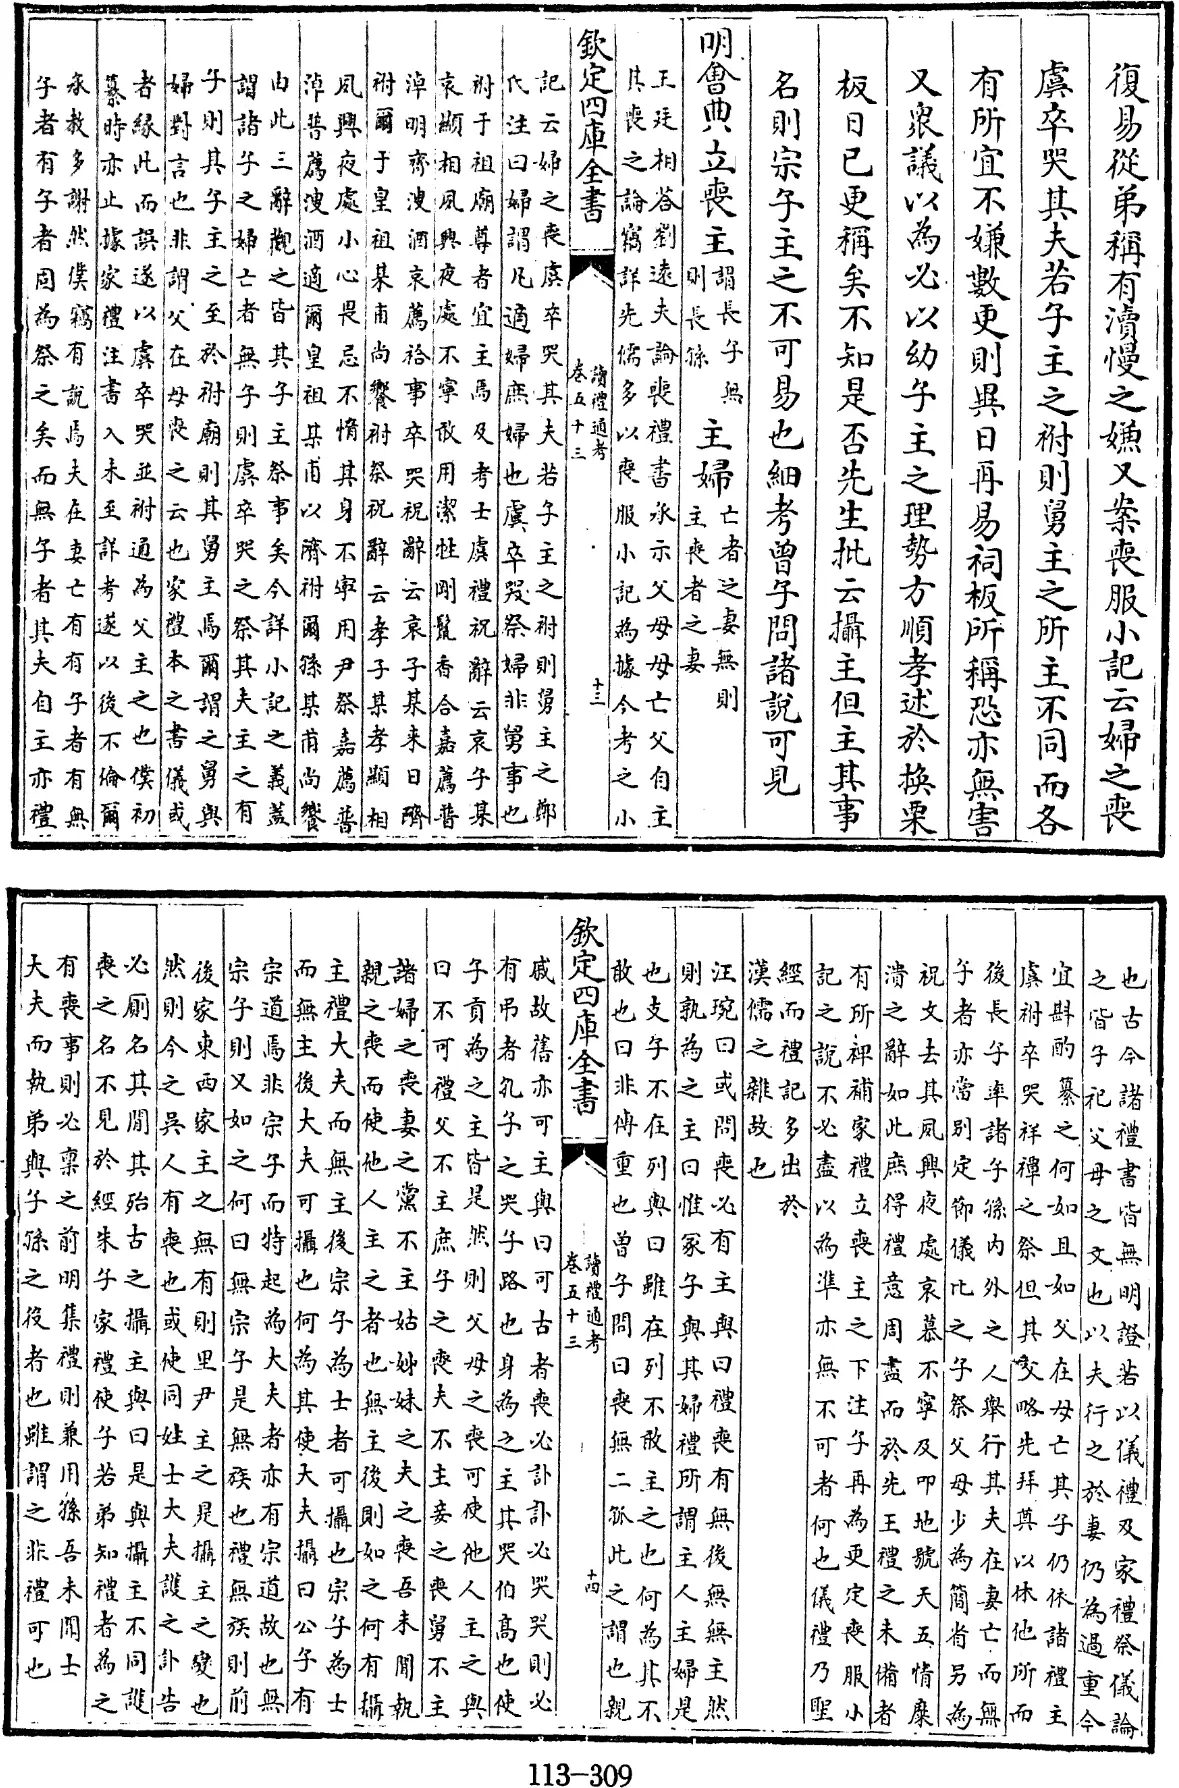 復易從弟稱有瀆慢之嫌又案喪服小記云婦之喪
虞卒哭其夫若子主之祔則舅主之所主不同而各
有所宜不嫌數更則異日再易祠板所稱恐亦無害
又衆議以為必以幼子主之理勢方順孝述於換栗
板日已更稱矣不知是否先生批云攝主但主其事
名則宗子主之不可易也細考曾子問諸說可見
明會典立喪主謂長子無則長孫主婦亡者之妻無則主喪者之妻
王廷相答劉遠夫論喪禮書承示父母母亡父自主
其喪之論竊詳先儒多以喪服小記為據今考之小
欽定四庫全書
讀禮通考
卷五十三
十三
記云婦之喪虞卒哭其夫若子主之祔則舅主之鄭
氏注曰婦謂凡適婦庶婦也虞卒哭祭婦非舅事也
祔于祖廟尊者宜主焉及考士虞禮祝辭云哀子某
哀顯相夙興夜處不寧敢用潔牲剛鬣香合嘉薦普
淖明齊溲酒哀薦祫事卒哭祝辭云哀子某來日隮
祔爾于皇祖某甫尚饗祔祭祝辭云孝子某孝顯相
夙興夜處小心畏忌不惰其身不寧用尹祭嘉薦普
淖普薦溲酒適爾皇祖某甫以隮祔爾孫某甫尚饗
由此三辭觀之皆其子主祭事矣今詳小記之義蓋
謂諸子之婦亡者無子則虞卒哭之祭其夫主之有
子則其子主之至於祔廟則其舅主焉爾謂之舅與
婦對言也非謂父在母喪之云也家禮本之書儀或
者緣此而誤遂以虞卒哭並祔通為父主之也僕初
纂時亦止據家禮注書入未至詳考遂以後不倫爾
承教多謝然僕竊有說焉夫在妻亡有有子者有無
子者有子者固為祭之矣而無子者其夫自主亦禮
也古今諸禮書皆無明證若以儀禮及家禮祭儀論
之皆子祀父母之文也以夫行之於妻仍為過重今
宜斟酌纂之何如且如父在母亡其子仍休諸禮主
虞祔卒哭祥禫之祭但其父略先拜奠以休他所而
後長子率諸子孫內外之人舉行其夫在妻亡而無
子者亦當別定節儀比之子祭父母少為簡省另為
祝文去其夙興夜處哀慕不寧及叩地號天五情糜
潰之辭如此庶得禮意周盡而於先王禮之未備者
有所裨補家禮立喪主之下注子再為更定喪服小
記之說不必盡以為準亦無不可者何也儀禮乃聖
經而禮記多出於
漢儒之雜故也
汪琬曰或問喪必有主與曰禮喪有無後無無主然
則孰為之主曰惟冢子與其婦禮所謂主人主婦是
也支子不在列與曰雖在列不敢主之也何為其不
敢也曰非傳重也曾子問曰喪無二孤此之謂也親
欽定四庫全書
讀禮通考
卷五十三
十四
戚故舊亦可主與曰可古者喪必訃訃必哭哭則必
有弔者孔子之哭子路也身為之主其哭伯高也使
子貢為之主皆是然則父母之喪可使他人主之與
曰不可禮父不主庶子之喪夫不主妾之喪舅不主
諸婦之喪妻之黨不主姑姊妹之夫之喪吾未聞執
親之喪而使他人主之者也無主後則如之何有攝
主禮大夫而無主後宗子為士者可攝也宗子為士
而無主後大夫可攝也何為其使大夫攝曰公子有
宗道焉非宗子而特起為大夫者亦有宗道故也無
宗子則又如之何曰無宗子是無族也禮無族則前
後家東西家主之無有則里尹主之是攝主之變也
然則今之吳人有喪也或使同姓士大夫護之訃告
必廁名其間其殆古之攝主與曰是與攝主不同護
喪之名不見於經朱子家禮使子若弟知禮者為之
有喪事則必稟之前明集禮則兼用孫吾未聞士
大夫而執弟與子孫之役者也雖謂之非禮可也
113-309